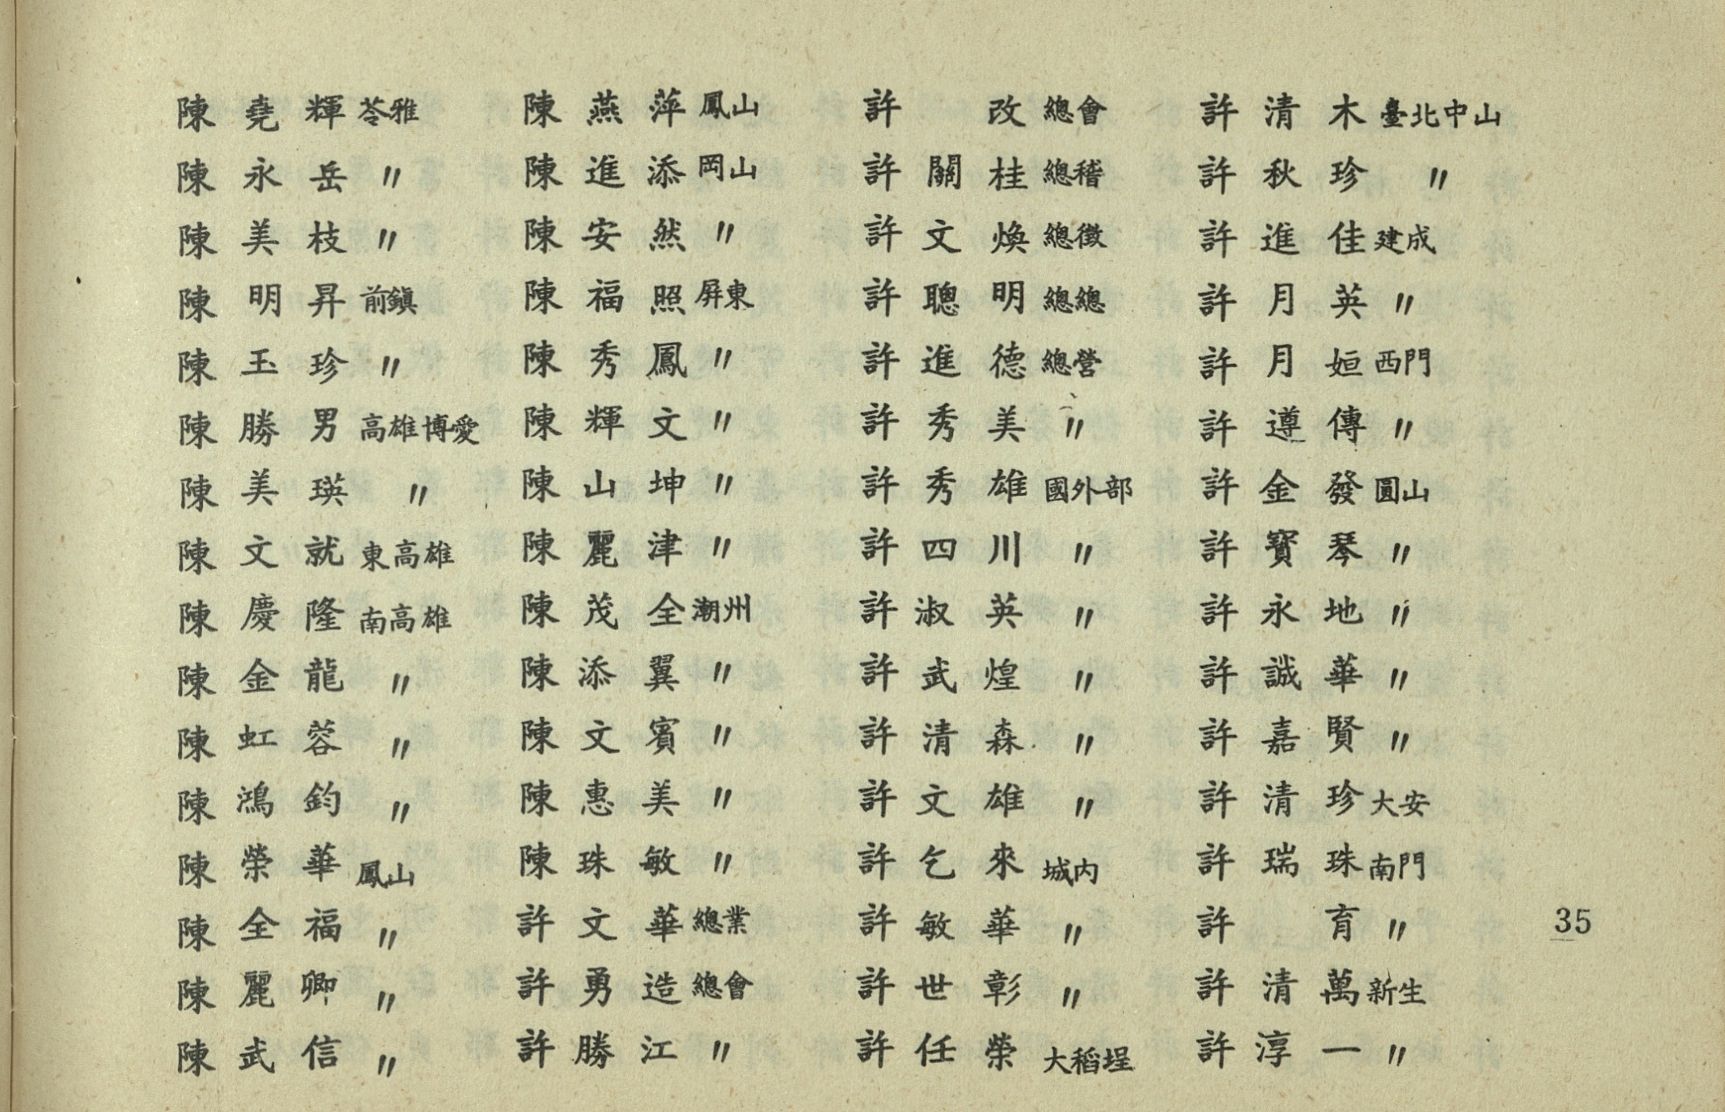 陳堯輝 苓雅
陳永岳 〃
陳美枝 〃
陳明昇 前鎮
陳玉珍 〃
陳勝男 高雄博愛
陳美瑛 〃
陳文就 東高雄
陳慶隆 南高雄
陳金龍 〃
陳虹蓉 〃
陳鴻鈞 〃
陳榮華 鳳山
陳全福 〃
陳麗卿 〃
陳武信 〃
陳燕萍 鳳山
陳進添 岡山
陳安然 〃
陳福照 屏東
陳秀鳳 〃
陳輝文 〃
陳山坤 〃
陳麗津 〃
陳茂全 潮州
陳添翼 〃
陳文賓 〃
陳惠美 〃
陳珠敏 〃
許文華 總業
許勇造 總會
許勝江 〃
許改 總會
許關桂 總稽
許文煥 總徵
許聰明 總總
許進德 總營
許秀美 〃
許秀雄 國外部
許四川 〃
許淑英 〃
許武煌 〃
許清森 〃
許文雄 〃
許乞來 城內
許敏華 〃
許世彰 〃
許任榮 大稻埕
許清木 臺北中山
許秋珍 〃
許進佳 建成
許月英 〃
許月姮 西門
許遵傳 〃
許金發 圓山
許寶琴 〃
許永地 〃
許誠華 〃
許嘉賢 〃
許清珍 大安
許瑞珠 南門
許育 〃
許清萬 新生
許淳一 〃
35